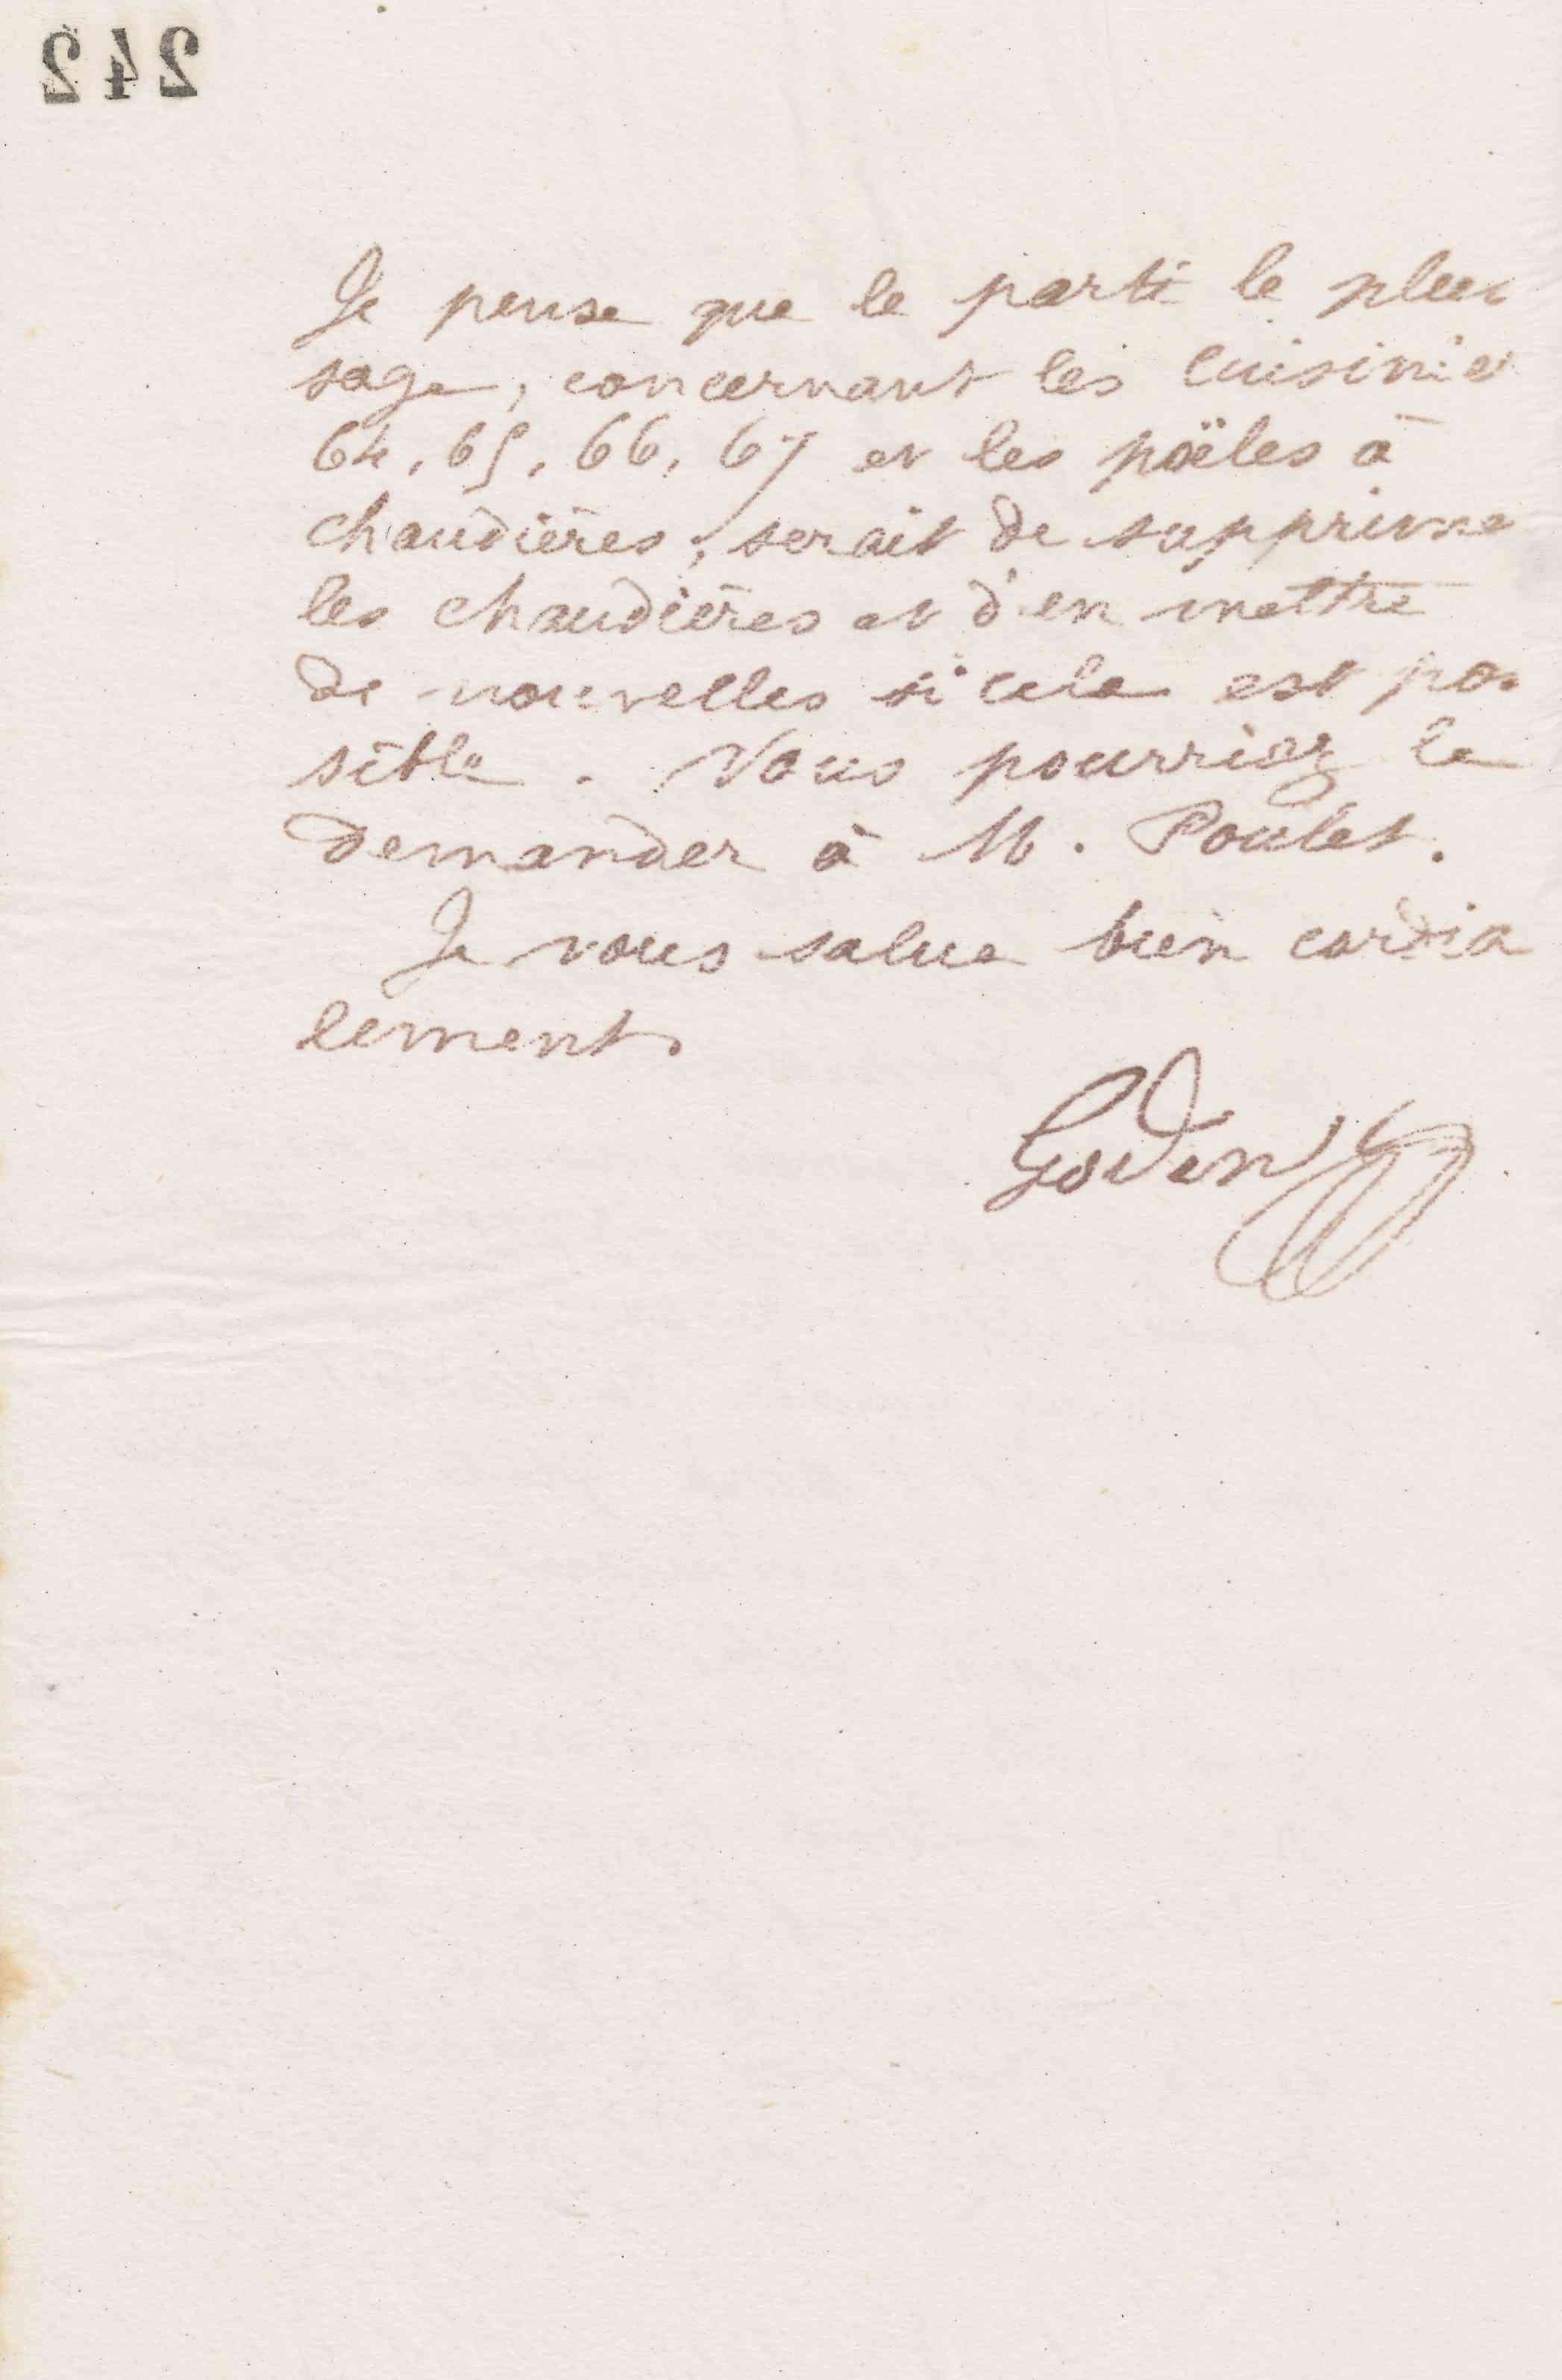 242
Je pense que le parti le plus
sage, concernant les cuisiniè
64, 65, 66, 67 et les poëles à
chaudières, serait de supprime
les chaudières et d'en mettre
de nouvelles si cela est pos
sible. Vous pourriez le
demander à M. Poulet.
Je vous salue bien cordia
lement.
Godin